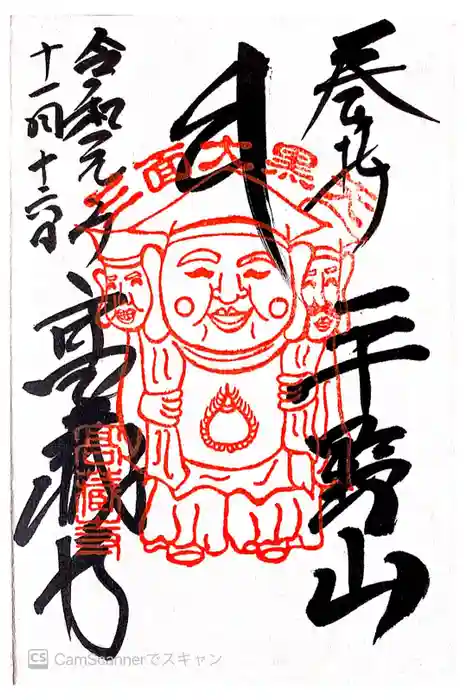 奉拝
平野山
三面大黒天
令和元年
十一月十六日
高蔵寺
高蔵寺
CS CamScannerでスキャン